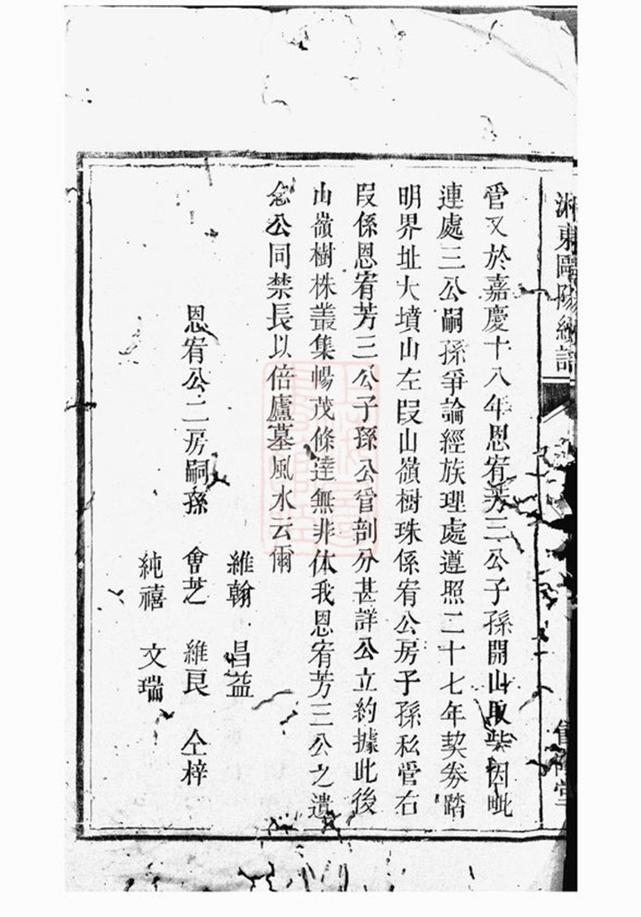 湘東歐陽紉譜
管又於嘉慶十八年恩宥芳三公子孫開山取柴因毗
連處三公嗣孫爭論經族理處遵照二十七年契券踏
明界址大墳山左叚山嶺樹珠係宥公房子孫私管右
叚係恩宥芳三公子孫公管剖分甚詳公立約據此後
山嶺樹株叢集暢茂條達無非体我恩宥芳三公之遺
念公同禁長以倍廬墓風水云爾
維翰 昌益
恩宥公二房嗣孫 會芝 維艮 仝梓
純禧 文瑞